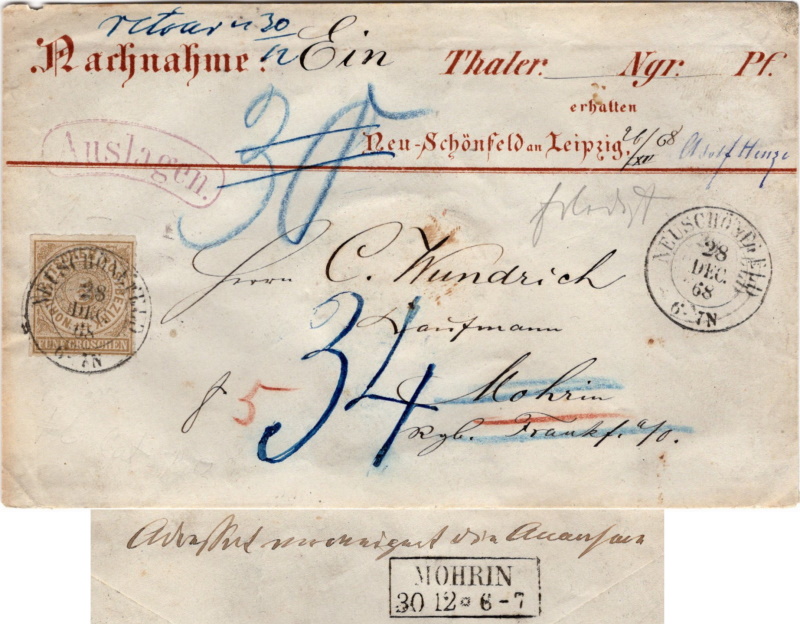 retour n 30/12
Nachnahme: Ein Thaler. Ngr. Pf.
erhalten
Neu-Schönfeld an Leipzig, 26/XII 68 Adolf Henze
Auslagen.
30
erledigt
NEUSCHÖNEFELD
28
DEC.
68
6-7N
NEUSCHÖNEFELD
28
DEC.
68
6-7N
FÜNF GROSCHEN
Herrn C. Wundrich
Kaufmann
5
34
Mohrin
Rgb. Frankf. a/O.
Adressat verweigert die Annahme
MOHRIN
30 12 6-7